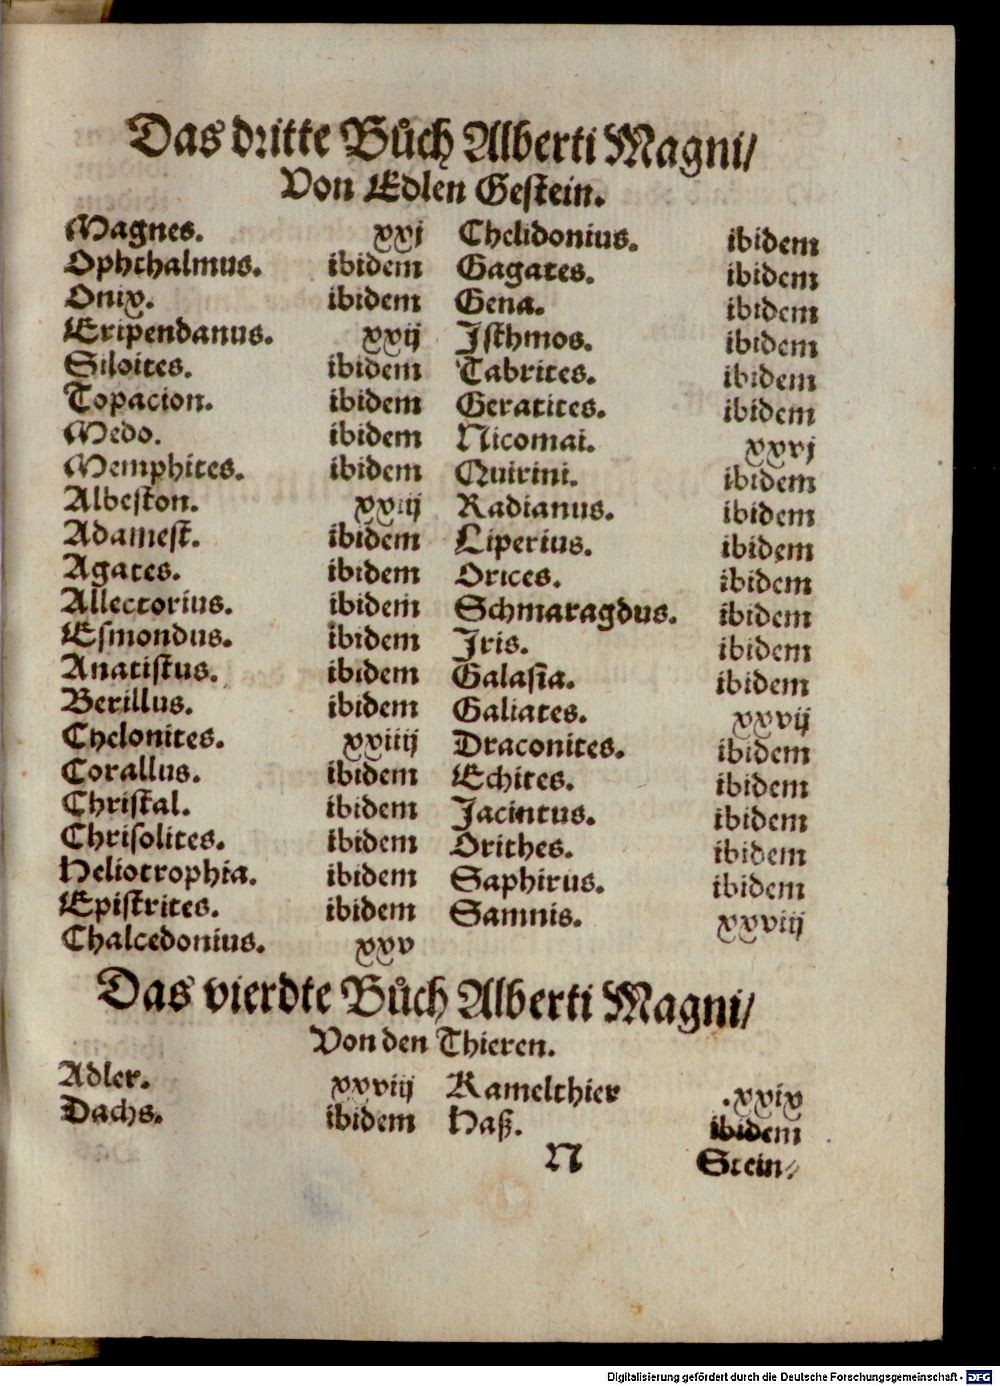 Das dritte Bůch Alberti Magni/
Von Edlen Gestein.
Magnes. xxj
Ophthalmus. ibidem
Onix. ibidem
Eripendanus. xxij
Siloites. ibidem
Topacion. ibidem
Medo. ibidem
Memphites. ibidem
Albeston. xxiij
Adamest. ibidem
Agates. ibidem
Allectorius. ibidem
Esmondus. ibidem
Anatistus. ibidem
Berillus. ibidem
Chelonites. xxiiij
Corallus. ibidem
Christal. ibidem
Chrisolites. ibidem
Heliotrophia. ibidem
Epistrites. ibidem
Chalcedonius. xxv
Chelidonius. ibidem
Gagates. ibidem
Gena. ibidem
Isthmos. ibidem
Tabrites. ibidem
Geratites. ibidem
Nicomai. xxvj
Quirini. ibidem
Radianus. ibidem
Liperius. ibidem
Orices. ibidem
Schmaragdus. ibidem
Iris. ibidem
Galasia. ibidem
Galiates. xxvij
Draconites. ibidem
Echites. ibidem
Jacintus. ibidem
Orithes. ibidem
Saphirus. ibidem
Samnis. xxviij
Das vierdte Bůch Alberti Magni/
Von den Thieren.
Adler. xxviij
Dachs. ibidem
Kamelthier .xxix
Haß. ibidem
N Stein⸗
Digitalisierung gefördert durch die Deutsche Forschungsgemeinschaft - DFG